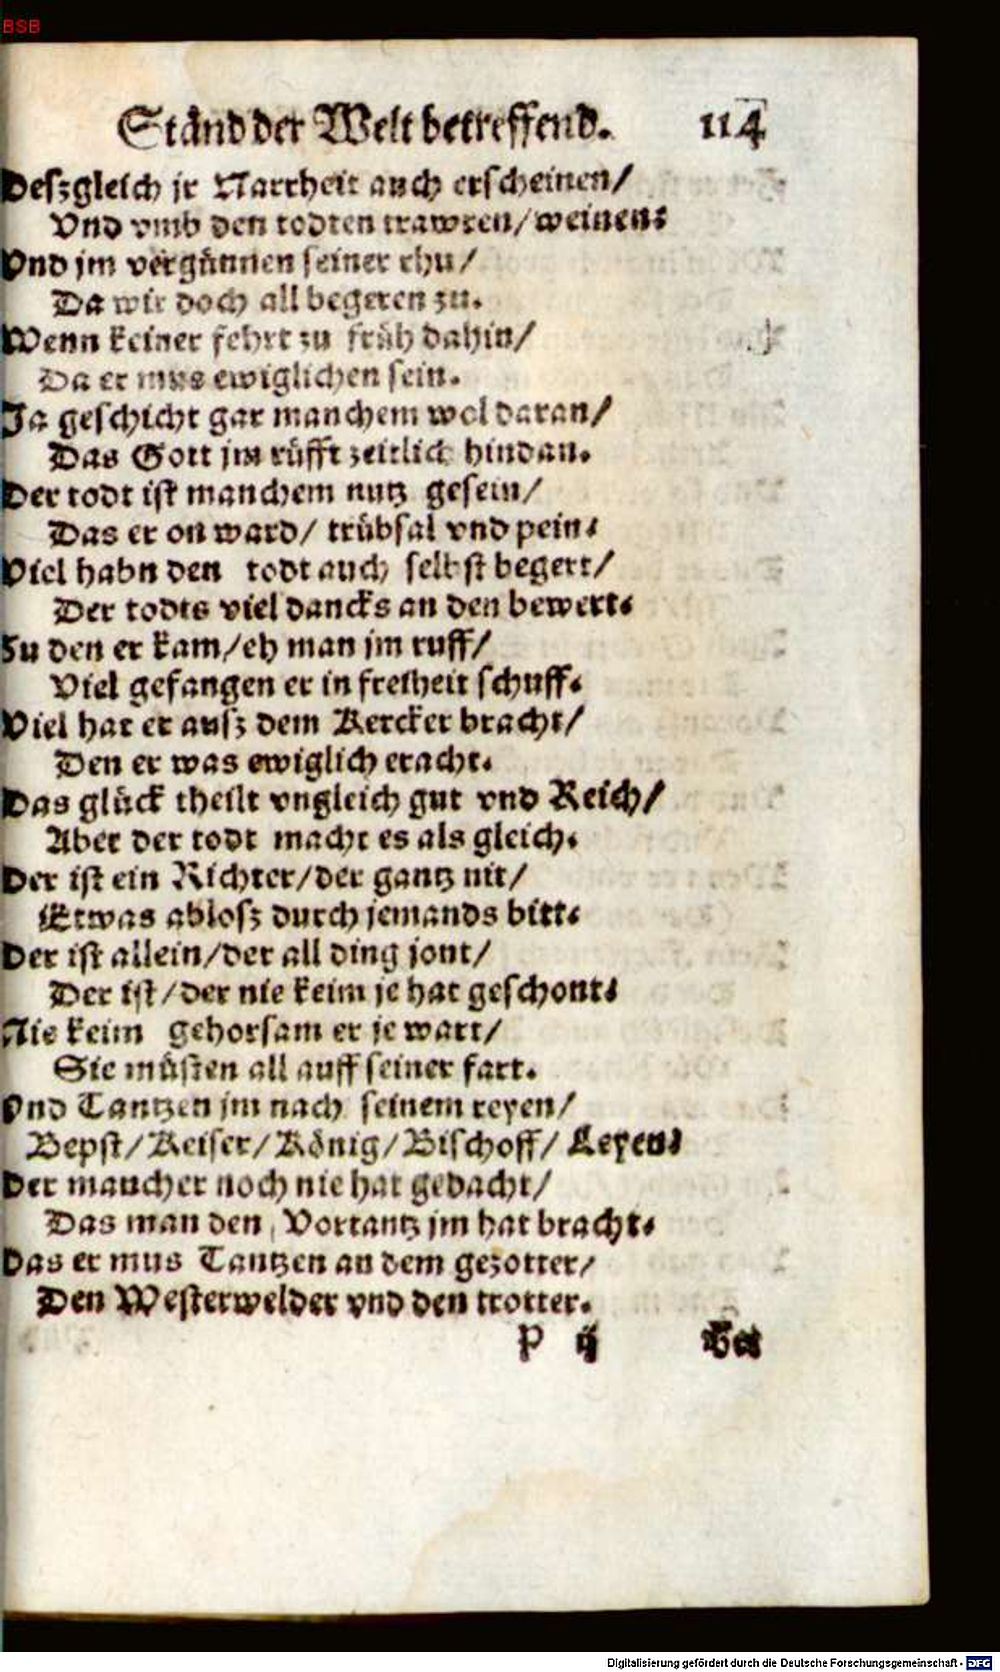 BSB
Ständ der Welt betreffend. 114
Deszgleich jr Narrheit auch erscheinen/
Vnd vmb den todten trawren/weinen:
Vnd jm vergünnen seiner rhu/
Da wir doch all begeren zu.
Wenn keiner fehrt zu früh dahin/
Da er mus ewiglichen sein.
Ja geschicht gar manchem wol daran/
Das Gott jm rüfft zeitlich hindan.
Der todt ist manchem nutz gesein/
Das er on ward/ trübsal vnd pein.
Viel habn den todt auch selbst begert/
Der todts viel dancks an den bewert.
Zu den er kam/eh man jm ruff/
Viel gefangen er in freiheit schuff.
Viel hat er ausz dem Kercker bracht/
Den er was ewiglich eracht.
Das glück theilt vngleich gut vnd Reich/
Aber der todt macht es als gleich.
Der ist ein Richter/der gantz nit/
Etwas ablosz durch jemands bitt.
Der ist allein/der all ding jont/
Der ist/der nie keim je hat geschont.
Nie keim gehorsam er je wart/
Sie müsten all auff seiner fart.
Vnd Tantzen jm nach seinem reyen/
Bepst/Keiser/König/Bischoff/ Leyen.
Der mancher noch nie hat gedacht/
Das man den Vortantz jm hat bracht.
Das er mus Tantzen an dem gezotter/
Den Westerwelder vnd den trotter.
P ij
Digitalisierung gefördert durch die Deutsche Forschungsgemeinschaft - DFG